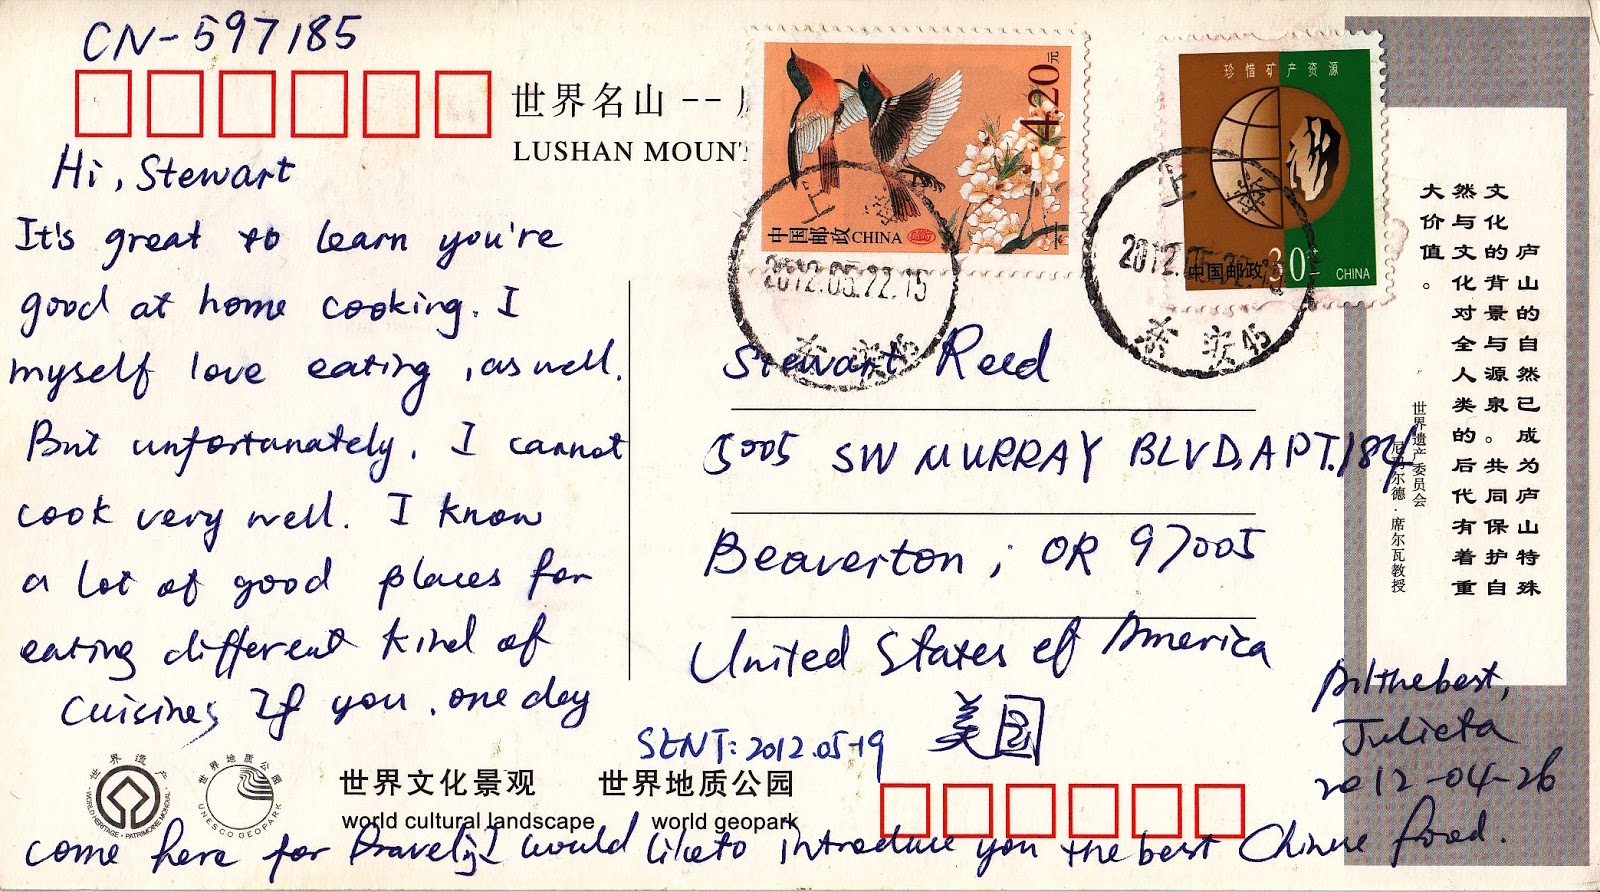 CN-597185
世界名山 --
LUSHAN MOUNT
Hi, Stewart
It's great to learn you're
good at home cooking. I
myself love eating, as well.
But unfortunately, I cannot
cook very well. I know
a lot of good places for
eating different kind of
cuisines, If you, one day
come here for travel, I would like to introduce you the best Chinese food.
All the best,
Julieta
2012-04-26
4.20元
中国邮政CHINA
珍惜矿产资源
中国邮政
30
CHINA
上
2012.05.22.15
泰安45
上
2012.05.22.15
泰安45
Stewart Reed
5005 SW MURRAY BLVD, APT.184
Beaverton, OR 97005
United States of America
美国
SENT: 2012.05-19
世界遗产
WORLD HERITAGE • PATRIMOINE MONDIAL
世界地质公园
UNESCO GEOPARK
世界文化景观
world cultural landscape
世界地质公园
world geopark
庐山的自然已成为庐山特殊
文化的背景与源泉。共同保护自
然与文化对全人类的后代有着重
大价值。
世界遗产委员会
尼玛尔德·席尔瓦教授